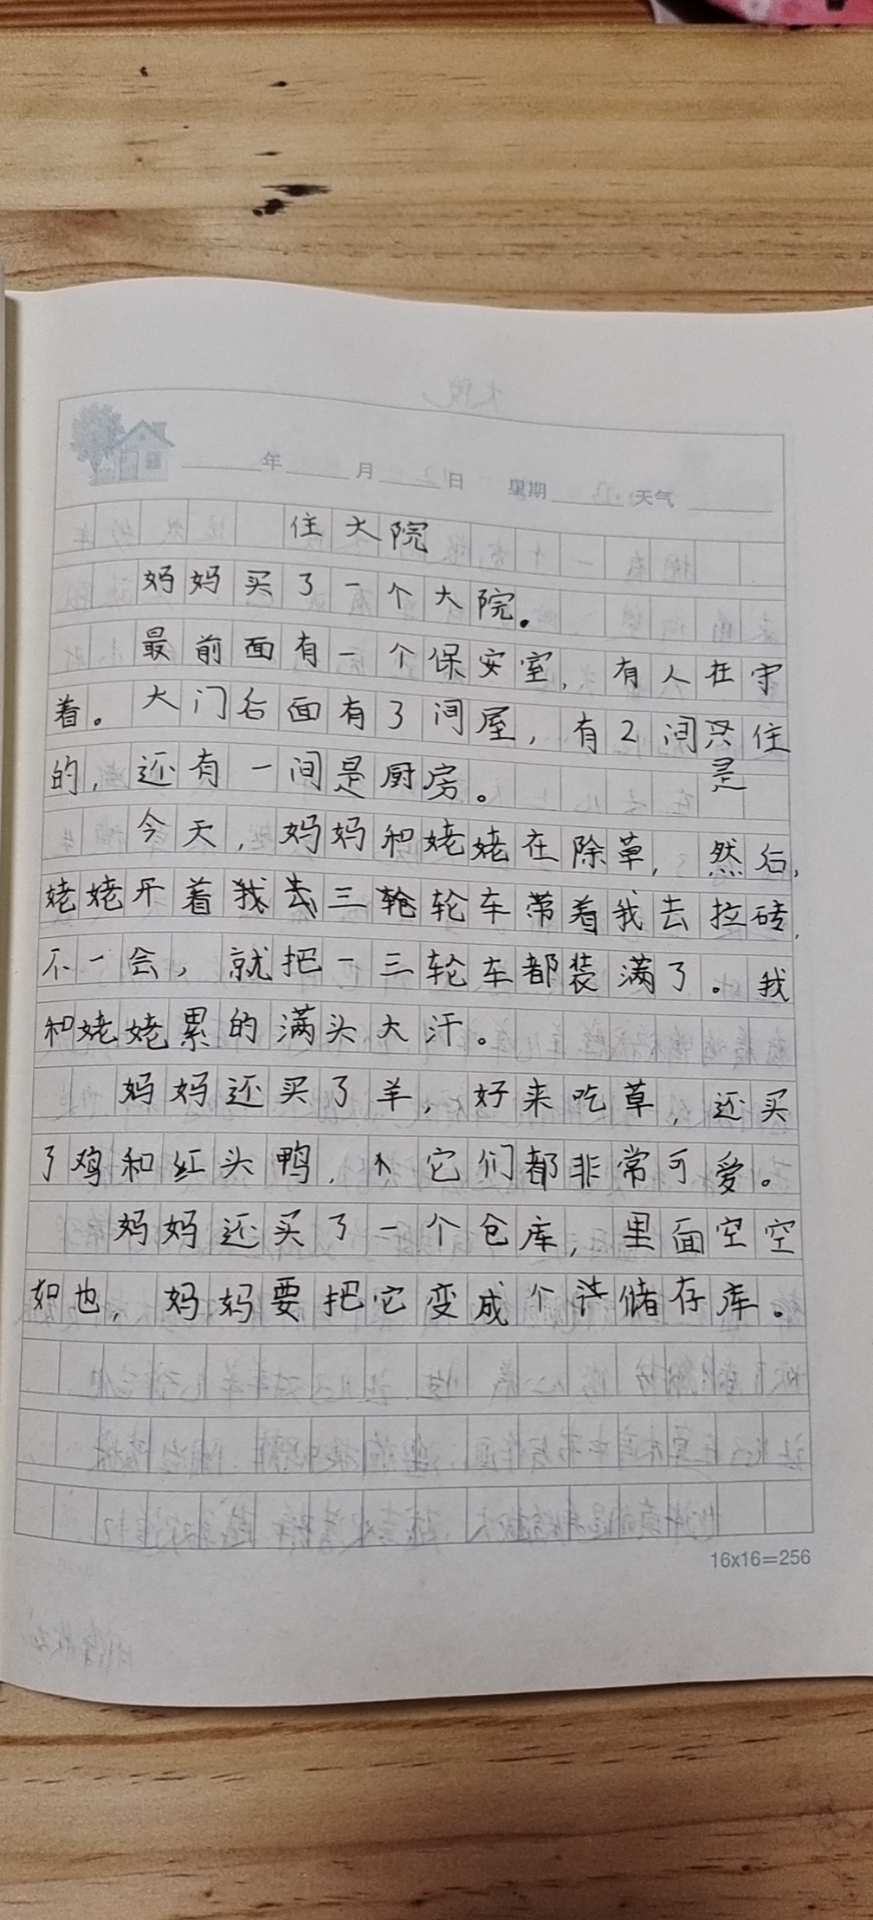 年 月 日 星期 天气
住大院
妈妈买了一个大院。
最前面有一个保安室，有人在守
着。大门后面有3间屋，有2间是住
的，还有一间是厨房。
今天，妈妈和姥姥在除草，然后，
姥姥开着我去三轮轮车带着我去拉砖，
不一会，就把一三轮车都装满了。我
和姥姥累的满头大汗。
妈妈还买了羊，好来吃草，还买
了鸡和红头鸭，它们都非常可爱。
妈妈还买了一个仓库，里面空空
如也，妈妈要把它变成个储存库。
16x16=256